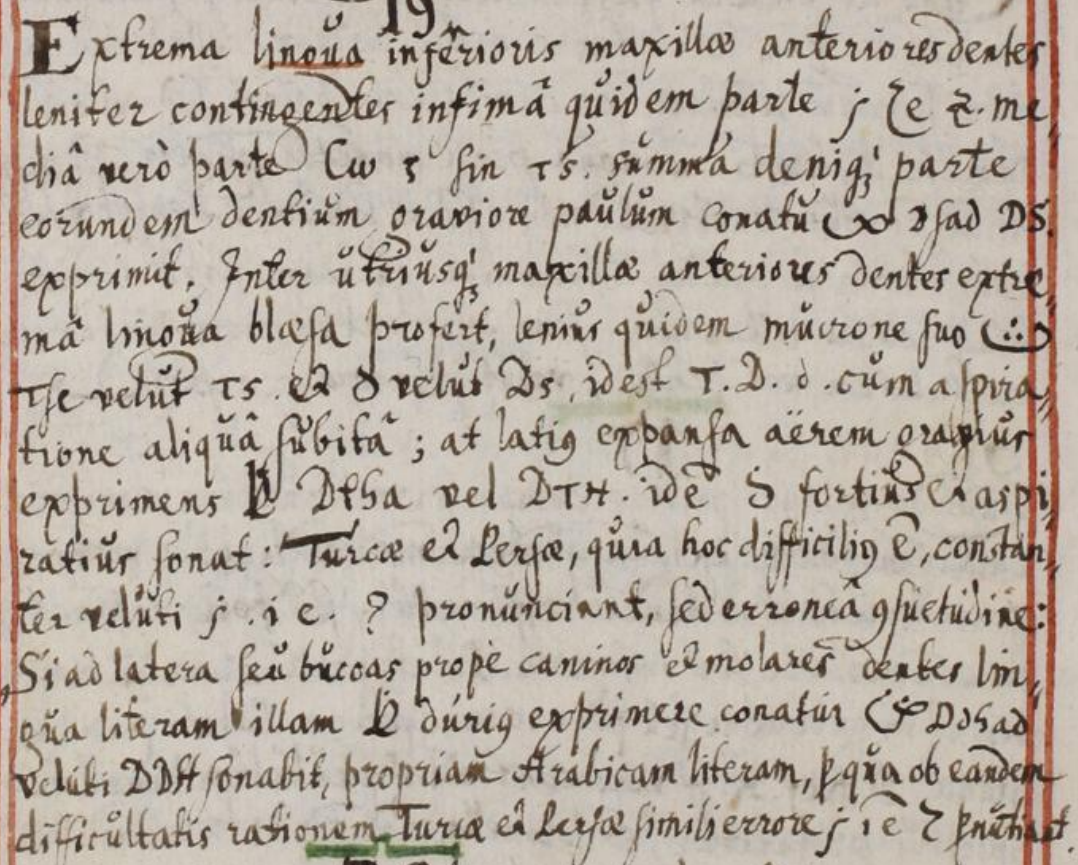 19
Extrema lingua inferioris maxillæ anteriores dentes
leniter contingentes infimâ quidem parte ز Ze Z. me,,
diâ verò parte س Sin TS. summâ deniq; parte
eorundem dentium graviore paulum conatu ص dsad DS.
exprimit. Inter utriusq; maxillæ anteriores dentes extre,,
mâ lingua blæsa profert, lenius quidem mucrone suo ث
Tse velut TS. et δ velut Ds, idest T. D. d. cum aspira,,
tione aliquâ subitâ; at latiꝰ expansa aërem gravius
exprimens ظ Dtha vel DTH. idē δ fortius et aspi,,
ratius sonat: Turcæ et Persæ, quia hoc difficiliꝰ ē, constan,,
ter veluti ز .i e. pronunciant, sed erroneâ ꝯsuetudine:
Si ad latera seu buccas prope caninos et molares dentes lin,,
gua literam illam ظ duriꝰ exprimere conatur ض Ddhad
veluti DDH sonabit, propriam Arabicam literam, ꝑ qua ob eandem
difficultatis rationem Turcæ et Persæ simili errore ز i e Z ꝓnūtiant.